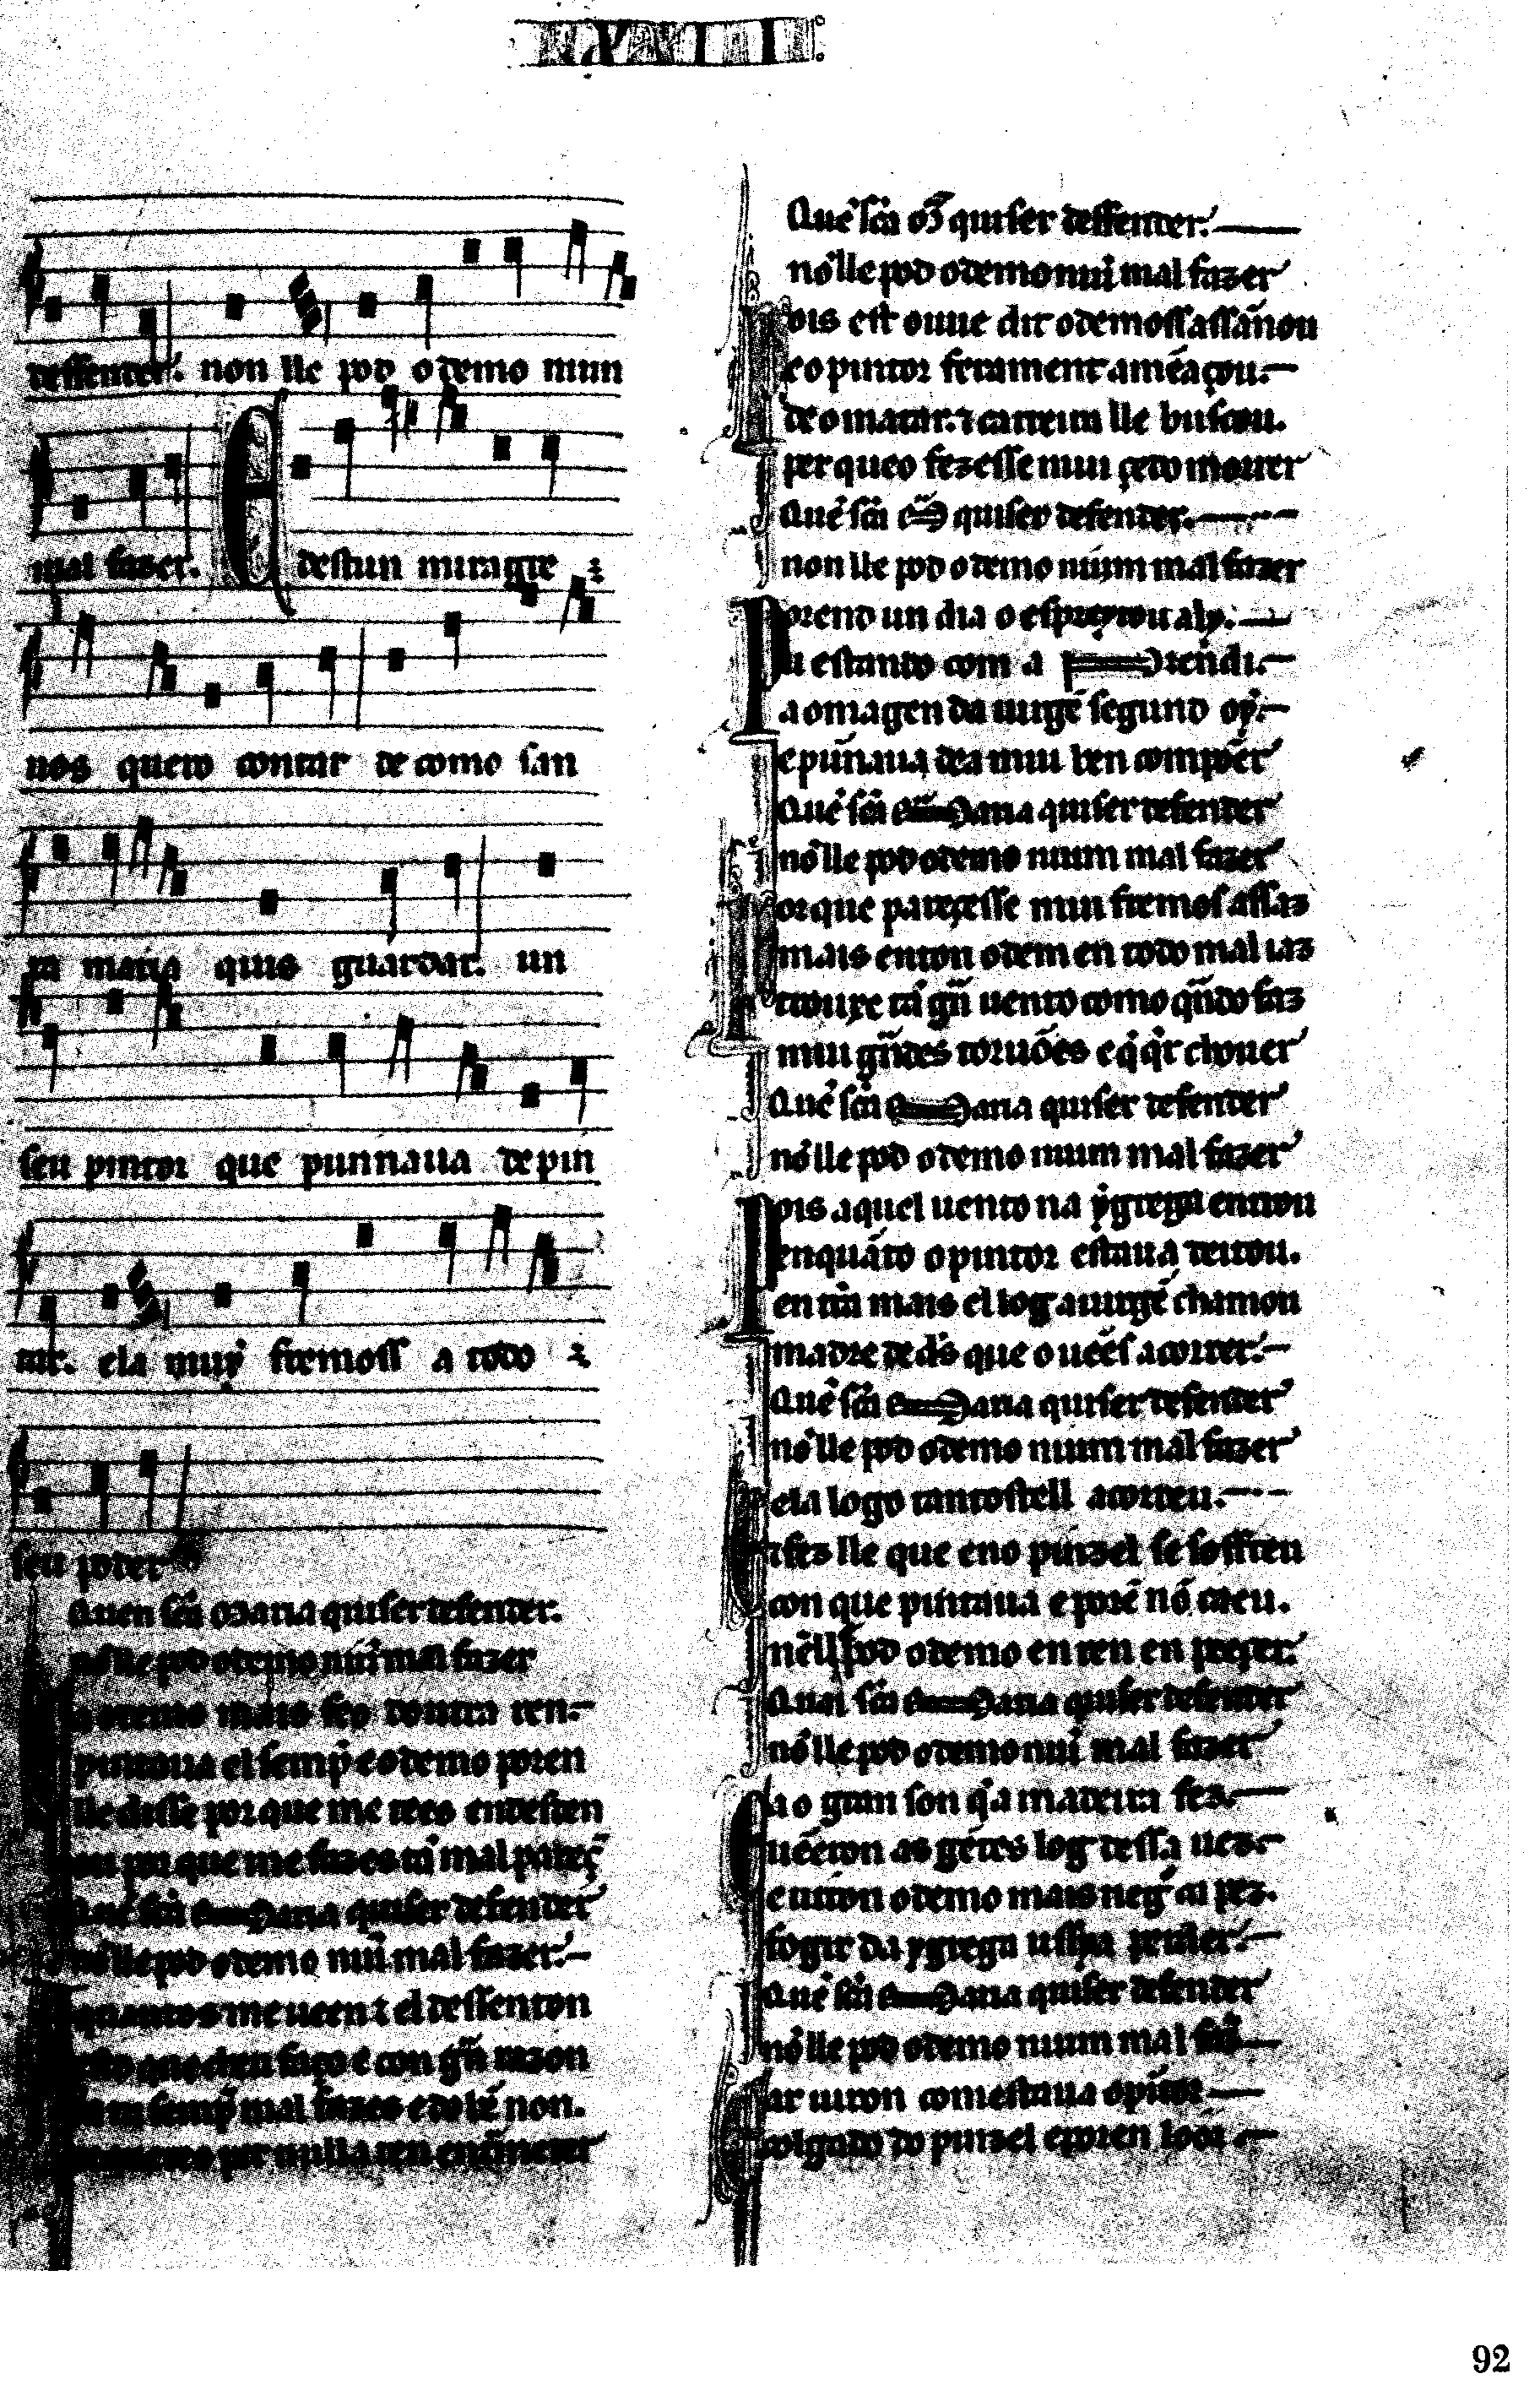 LXXIIII
deffender. non lle pod o demo nun
mal fazer. E destun miragre ⁊
uos quero contar de como san
ta maria quis guardar. un
seu pintor que punnaua de pin
tar. ela muy fremoss a todo ⁊
seu poder
Quen scã Maria quiser defender.
nõ lle pod o demo nũ mal fazer
o demo mais feo doutra ren.
pintaua el semp̃ e o demo poren
lle disse por que me tees endesden
ou por que me fazes tã mal pareç̃
Quẽ scã Maria quiser defender
nõ lle pod o demo nũ mal fazer.
quantos me ueen ⁊ el dessenton
esto que cheu faço e con grã razon
semp̃ mal fazes e do bẽ non.
per nulla ren entrameter
Quẽ scã M̃ quiser deffender.
nõ lle pod o demo nui mal fazer
Pois est ouue dit o demoss assãnou
e o pintor feramente amẽaçou.
de o matar. ⁊ carreira lle buscou.
per que o fezesse mui çedo morrer
Quẽ scã M̃ quiser defender.
non lle pod o demo nũum mal fazer
Porend un dia o espreytou aly.
u estando com a prendi.
a omagen da uirgẽ segund oy.
e puñaua de a mui ben compõer
Quẽ scã Maria quiser defender
nõ lle pod o demo nium mal fazer
Porque pareçesse mui fremos assaz
mais enton o dem en todo mal iaz
trouxe tã grã uento como qñdo faz
mui grãdes toruões e q̇ q̇r chouer
Quẽ scã Maria quiser defender
nõ lle pod o demo nium mal fazer
Pois aquel uento na ygrega entrou
enquãto o pintor estaua deitou.
en trã mais el log a uirgẽ chamou
madre de ds̃ que o uẽes acorrer.
Quẽ scã Maria quiser defender
nõ lle pod o demo nium mal fazer
E ela logo tantostell acorreu.
⁊ fez lle que eno pinzel se soffreu
con que pintaua e porẽ nõ caeu.
nẽ ll pod o demo en ren en peeçer.
Quẽ scã Maria quiser defender
nõ lle pod o demo nui mal fazer
E a o gran son q̇ a madeira fez.
uẽeron as gẽtes log dessa uez.
e uiron o demo mais negr̃ ca pez.
fogir da ygrega ussya perder.
Quẽ scã Maria quiser defender
nõ lle pod o demo nium mal faz̃
ar uiron com estaua o pĩtor
colgado do pinzel e poren loor
92